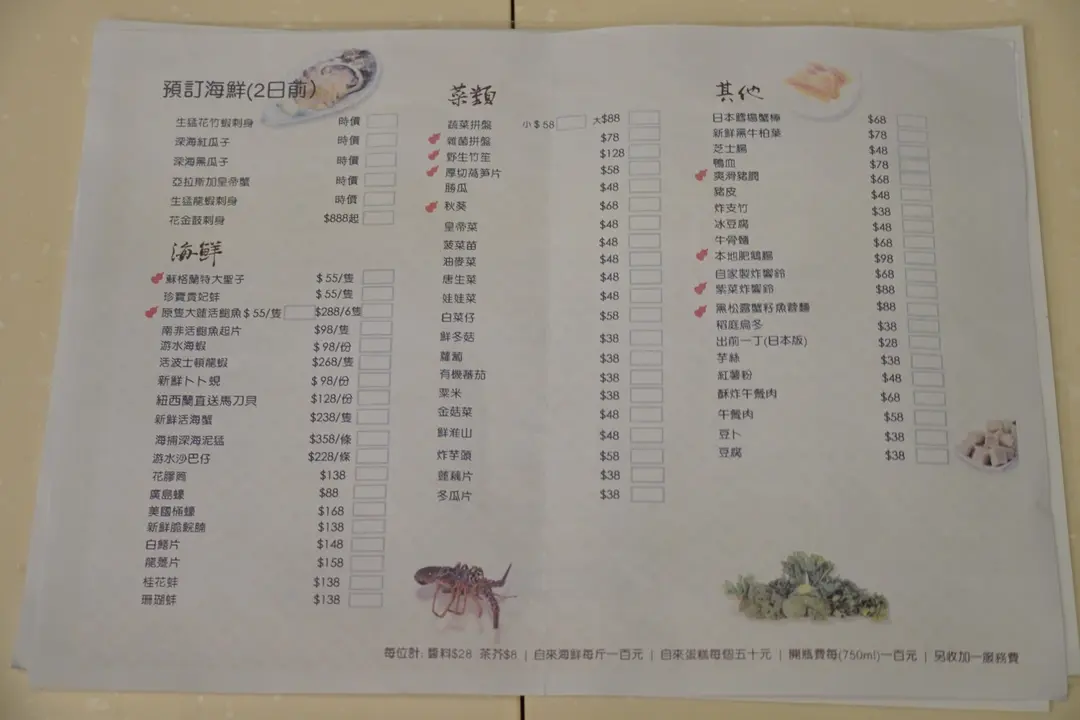 預訂海鮮(2日前)
生猛花竹蝦刺身 時價
深海紅瓜子 時價
深海黑瓜子 時價
亞拉斯加皇帝蟹 時價
生猛龍蝦刺身 時價
花金鼓刺身 $888起
海鮮
蘇格蘭特大聖子 $55/隻
珍寶貴妃蚌 $55/隻
原隻大蓮活鮑魚 $55/隻 $288/6隻
南非活鮑魚超片 $98/隻
游水海蝦 $98/份
活波士頓龍蝦 $268/隻
新鮮卜卜蜆 $98/份
紐西蘭直送馬刀貝 $128/份
新鮮活海蟹 $238/隻
海捕深海泥猛 $358/條
游水沙巴仔 $228/條
花膠筒 $138
廣島蠔 $88
美國桶蠔 $168
新鮮脆鯇腩 $138
白鱔片 $148
龍躉片 $158
桂花蚌 $138
珊瑚蚌 $138
菜類
蔬菜拼盤 小$58 大$88
雜菌拼盤 $78
野生竹笙 $128
厚切萵筍片 $58
勝瓜 $48
秋葵 $68
皇帝菜 $48
菠菜苗 $48
油麥菜 $48
唐生菜 $48
娃娃菜 $48
白菜仔 $58
鮮冬菇 $38
蘿蔔 $38
有機蕃茄 $38
粟米 $38
金菇菜 $48
鮮淮山 $48
炸芋頭 $58
蓮藕片 $38
冬瓜片 $38
其他
日本鱈場蟹棒 $68
新鮮黑牛柏葉 $78
芝士腸 $48
鴨血 $78
爽滑豬膶 $68
豬皮 $48
炸支竹 $38
冰豆腐 $48
牛骨髓 $68
本地肥鵝腸 $98
自家製炸響鈴 $68
紫菜炸響鈴 $88
黑松露蟹籽魚蓉麵 $88
稻庭烏冬 $38
出前一丁(日本版) $28
芋絲 $38
紅薯粉 $48
酥炸午餐肉 $68
午餐肉 $58
豆卜 $38
豆腐 $38
每位計: 醬料$28 茶芥$8 | 自來海鮮每斤一百元 | 自來蛋糕每個五十元 | 開瓶費每(750ml)一百元 | 另收加一服務費